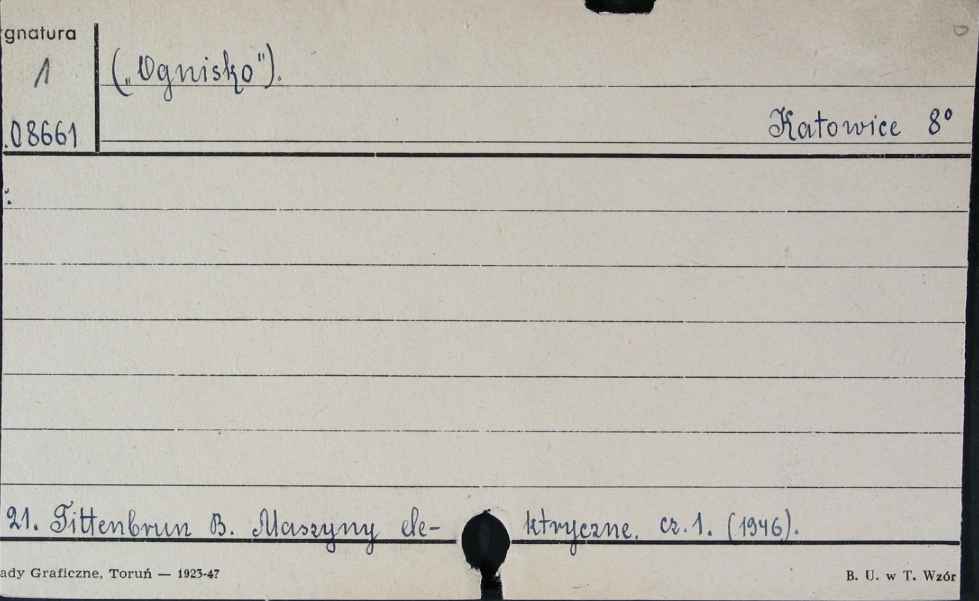 gnatura
1
("Ognisko").
.08661
Katowice 8°
21. Tittenbrun B. Maszyny ele-ktryczne. cz. 1. (1946).
ady Graficzne, Toruń — 1923-47
B. U. w T. Wzór